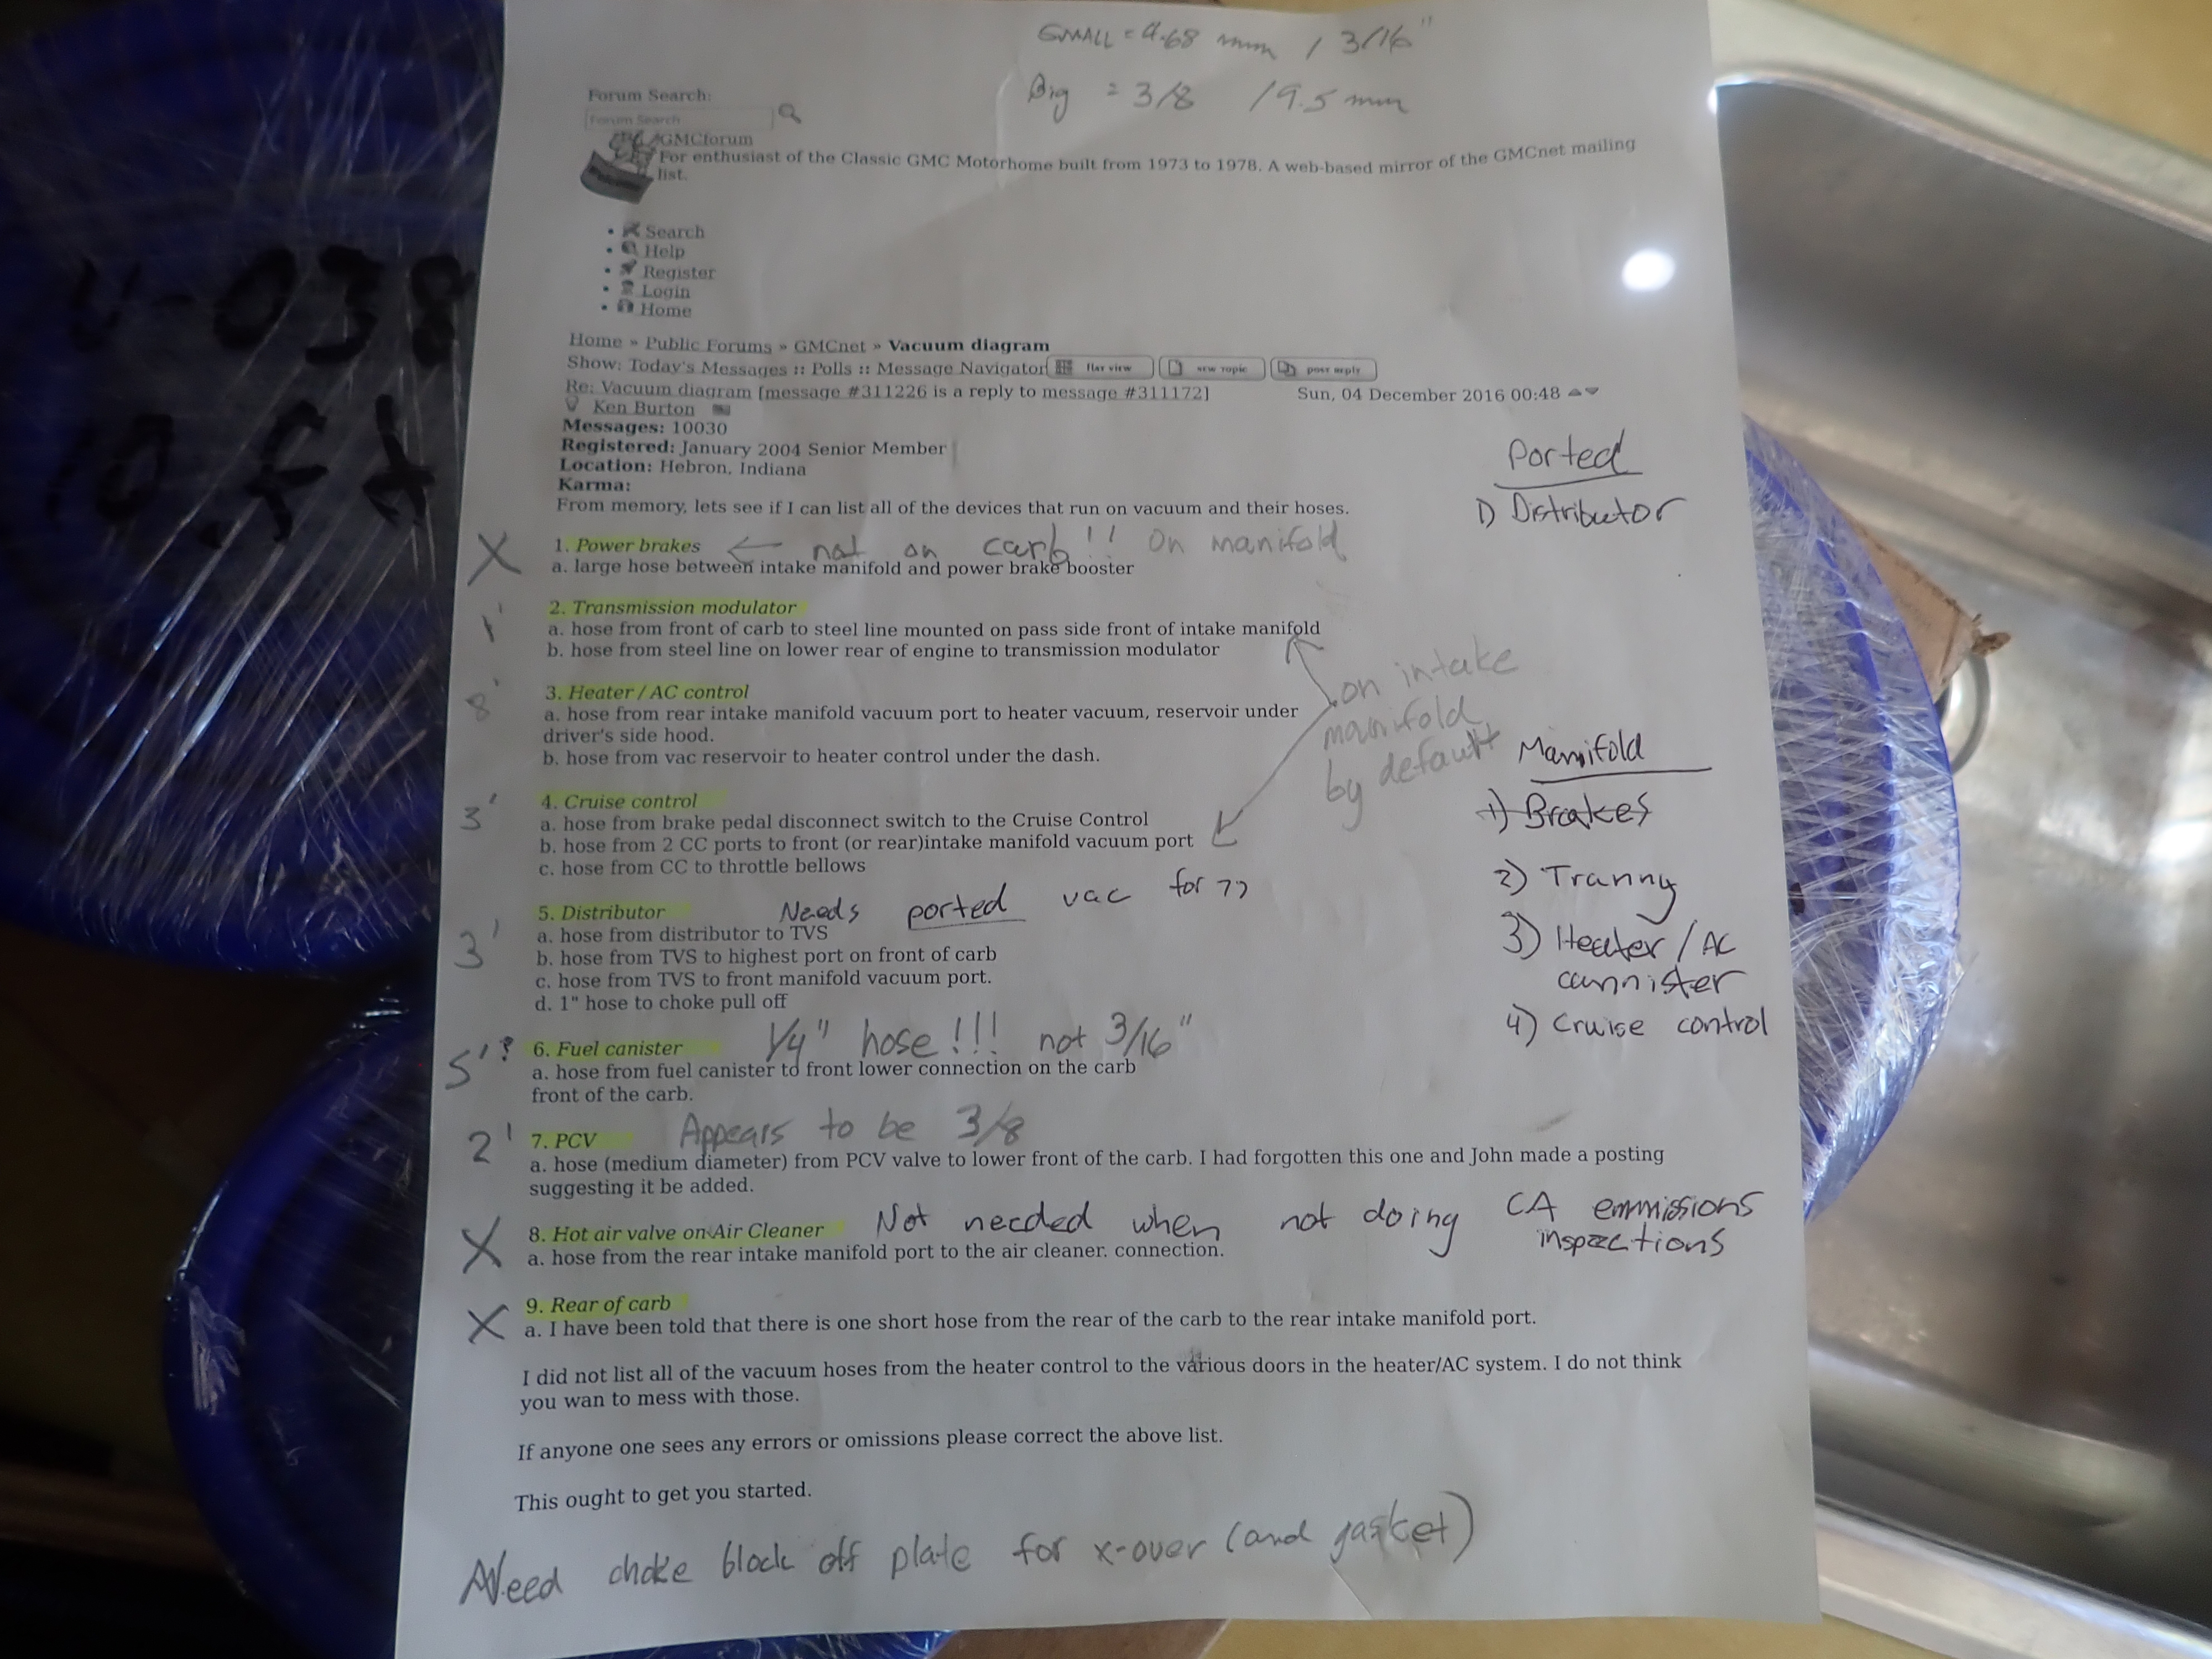 SMALL = 4.68 mm / 3/16"
Big = 3/8 / 9.5 mm
Forum Search:
Forum Search
GMCforum
For enthusiast of the Classic GMC Motorhome built from 1973 to 1978. A web-based mirror of the GMCnet mailing
list.
• Search
• Help
• Register
• Login
• Home
Home » Public Forums » GMCnet » Vacuum diagram
Show: Today's Messages :: Polls :: Message Navigator flat view new topic post reply
Re: Vacuum diagram [message #311226 is a reply to message #311172] Sun, 04 December 2016 00:48
Ken Burton
Messages: 10030
Registered: January 2004 Senior Member
Location: Hebron, Indiana
Karma:
From memory, lets see if I can list all of the devices that run on vacuum and their hoses.
Ported
1) Distributor
X 1. Power brakes ← not on carb!! On manifold
a. large hose between intake manifold and power brake booster
1' 2. Transmission modulator
a. hose from front of carb to steel line mounted on pass side front of intake manifold
b. hose from steel line on lower rear of engine to transmission modulator
8' 3. Heater / AC control
a. hose from rear intake manifold vacuum port to heater vacuum, reservoir under
driver's side hood.
b. hose from vac reservoir to heater control under the dash.
on intake
manifold
by default
3' 4. Cruise control
a. hose from brake pedal disconnect switch to the Cruise Control
b. hose from 2 CC ports to front (or rear)intake manifold vacuum port
c. hose from CC to throttle bellows
Manifold
1) Brakes
2) Tranny
3) Heater / AC
cannister
4) Cruise control
3' 5. Distributor Needs ported vac for 77
a. hose from distributor to TVS
b. hose from TVS to highest port on front of carb
c. hose from TVS to front manifold vacuum port.
d. 1" hose to choke pull off
5'? 6. Fuel canister 1/4" hose!!! not 3/16"
a. hose from fuel canister to front lower connection on the carb
front of the carb.
2' 7. PCV Appears to be 3/8
a. hose (medium diameter) from PCV valve to lower front of the carb. I had forgotten this one and John made a posting
suggesting it be added.
X 8. Hot air valve on Air Cleaner Not needed when not doing CA emmissions
inspections
a. hose from the rear intake manifold port to the air cleaner. connection.
X 9. Rear of carb
a. I have been told that there is one short hose from the rear of the carb to the rear intake manifold port.
I did not list all of the vacuum hoses from the heater control to the various doors in the heater/AC system. I do not think
you wan to mess with those.
If anyone one sees any errors or omissions please correct the above list.
This ought to get you started.
Need choke block off plate for x-over (and gasket)
V-038
10.ft